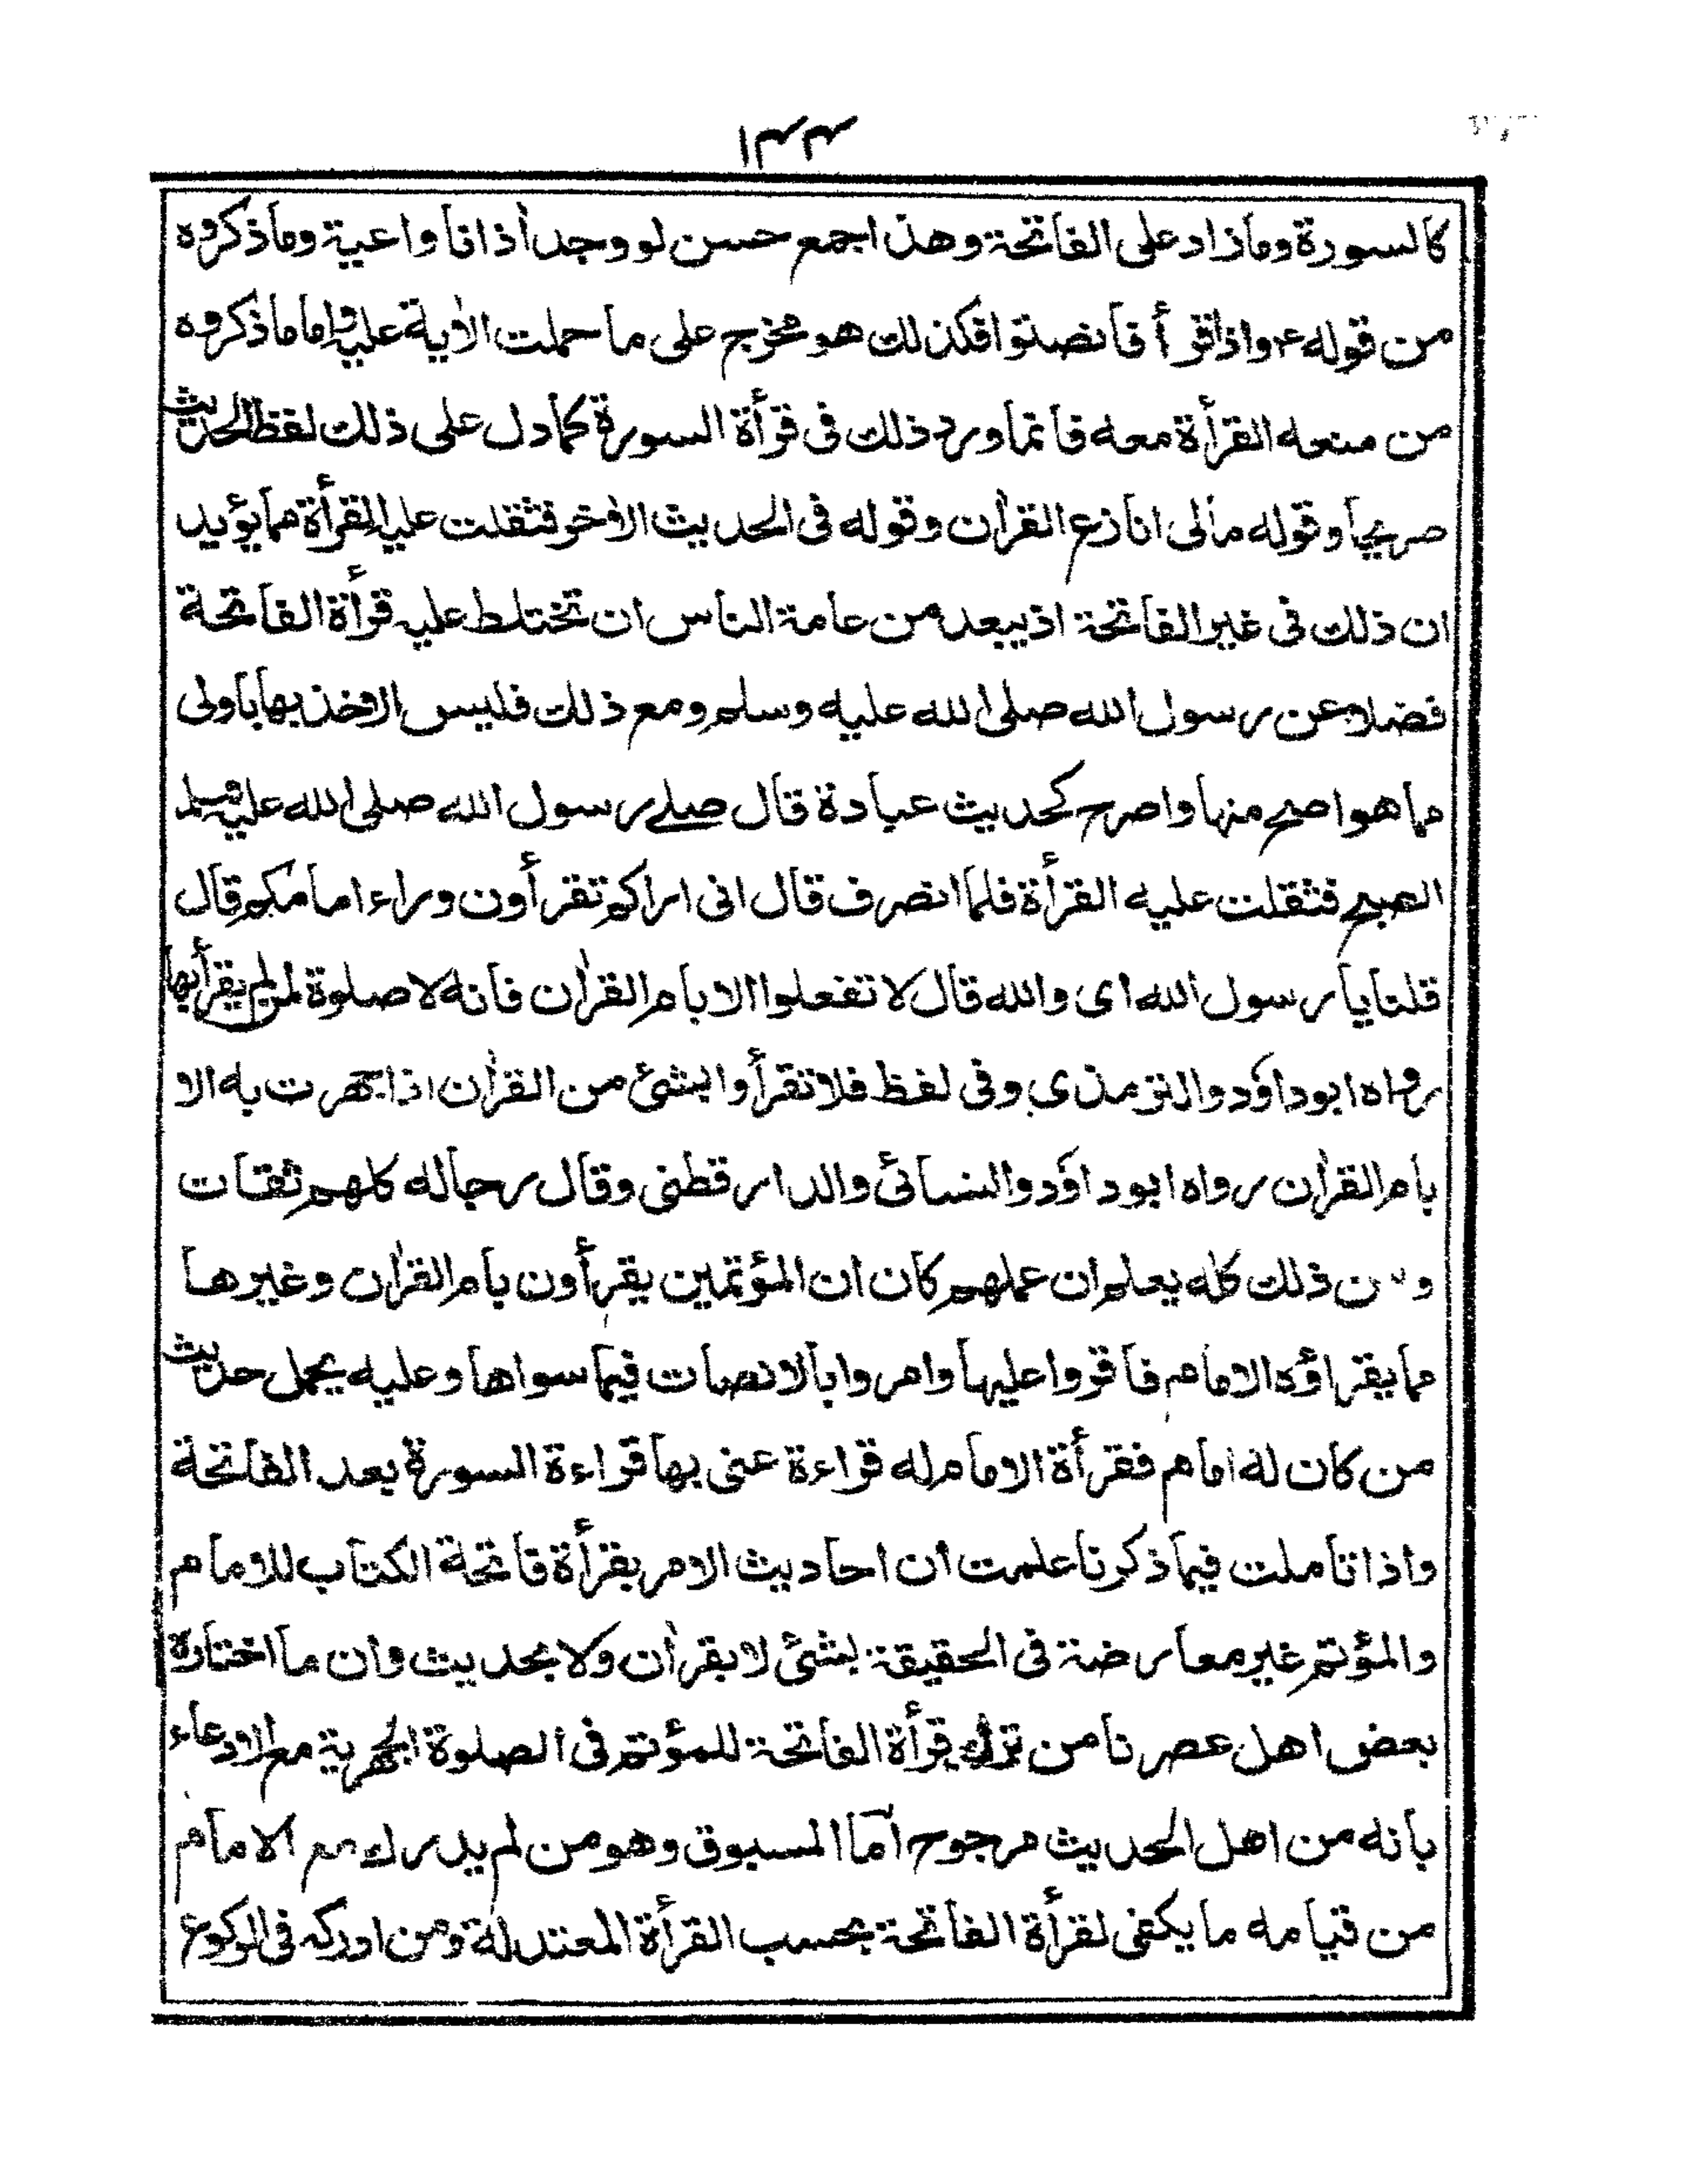 ١٣٤
كالسورة وما زاد على الفاتحة وهذا جمع حسن لو وجد أذانا واعية وما ذكروه
من قوله ؑ واذا قرأ فانصتوا فكذلك هو مخرج على ما حملت الاٰية عليه واما ما ذكروه
من منعه القرأة معه فانما ورد ذلك فى قرأة السورة كما دل على ذلك لفظ الحديث
صريحا وقوله مالى انازع القراٰن وقوله فى الحديث الاٰخر فثقلت عليه القرأة مما يؤيد
ان ذلك فى غير الفاتحة اذ يبعد من عامة الناس ان تختلط عليه قرأة الفاتحة
فضلا عن رسول الله صلى الله عليه وسلم ومع ذلك فليس الاخذ بها باولى
مما هو اصح منها واصرح كحديث عبادة قال صلے رسول الله صلى الله عليه وسلم
الصبح فثقلت عليه القرأة فلما انصرف قال انى اراكم تقرأون وراء امامكم قال
قلنا يا رسول الله اى والله قال لا تفعلوا الا بام القراٰن فانه لا صلوة لمن لم يقرأ بها
رواه ابو داؤد والترمذى وفى لفظ فلا تقرأوا بشئ من القراٰن اذا جهرت به الا
بام القراٰن رواه ابو داؤد والنسائى والدارقطنى وقال رجاله كلهم ثقات
ومن ذلك كله يعلم ان عملهم كان ان المؤتمين يقرأون بام القراٰن وغيرها
مما يقراؤه الامام فاقروا عليها وامروا بالانصات فيما سواها وعليه يحمل حديث
من كان له امام فقرأة الامام له قراءة عنى بها قراءة السورة بعد الفاتحة
واذا تاملت فيما ذكرنا علمت ان احاديث الامر بقرأة فاتحة الكتاب للامام
والمؤتم غير معارضة فى الحقيقة بشئ لا بقراٰن ولا بحديث وان ما اختاره
بعض اهل عصرنا من ترك قرأة الفاتحة للمؤتم فى الصلوة الجهرية مع الادعاء
بانه من اهل الحديث مرجوح اما المسبوق وهو من لم يدرك مع الامام
من قيامه ما يكفى لقرأة الفاتحة بحسب القرأة المعتدلة ومن ادركه فى الركوع